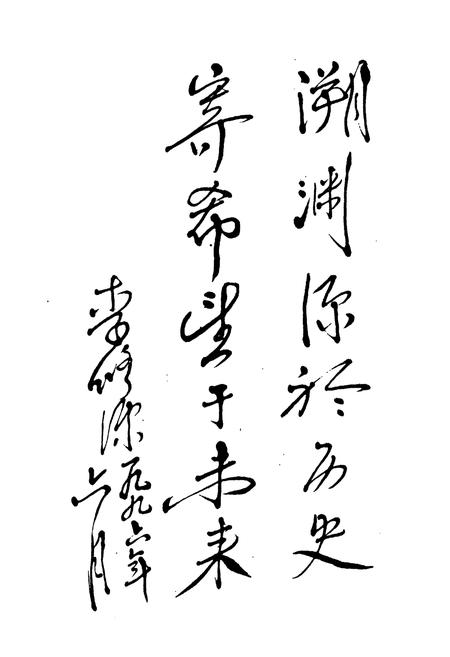 溯渊源於历史
寄希望于未来
李
一九九六年
六月